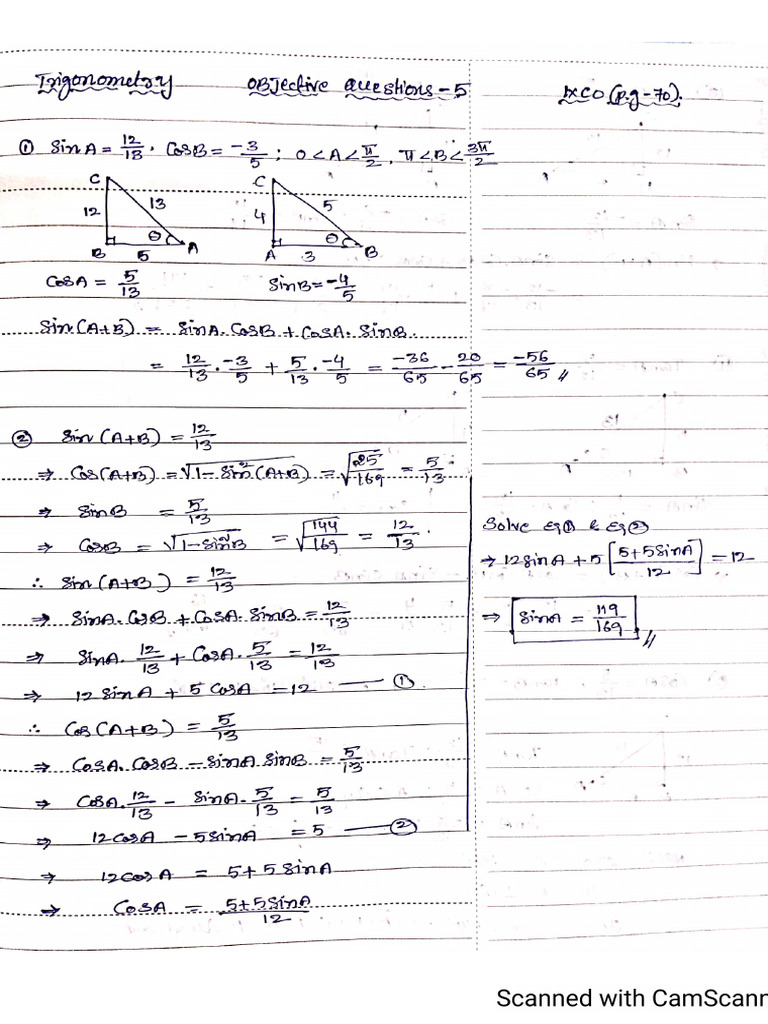 Trigonometry Objective Questions-5 IXCO (P.g-70).
① SinA = 12/13 . CosB = -3/5 ; 0<A<π/2 , π<B<3π/2
C C
12 13 4 5
B 5 θ A A 3 θ B
CosA = 5/13 SinB = -4/5
Sin(A+B) = SinA.CosB + CosA.SinB.
= 12/13 . -3/5 + 5/13 . -4/5 = -36/65 - 20/65 = -56/65 //
② Sin(A+B) = 12/13
⇒ Cos(A+B) = √1-Sin²(A+B) = √25/169 = 5/13
⇒ SinB = 5/13
⇒ CosB = √1-Sin²B = √144/169 = 12/13.
∴ Sin(A+B) = 12/13
⇒ SinA.CosB + CosA.SinB = 12/13
⇒ SinA.12/13 + CosA.5/13 = 12/13
⇒ 12SinA + 5CosA = 12 — ①.
∴ Cos(A+B) = 5/13
⇒ CosA.CosB - SinA.SinB = 5/13
⇒ CosA.12/13 - SinA.5/13 = 5/13
⇒ 12CosA - 5SinA = 5 — ②
⇒ 12CosA = 5+5SinA
⇒ CosA = 5+5SinA/12
Solve Eq① & Eq②
⇒ 12SinA + 5[5+5SinA/12] = 12
⇒ SinA = 119/169 //
Scanned with CamScann